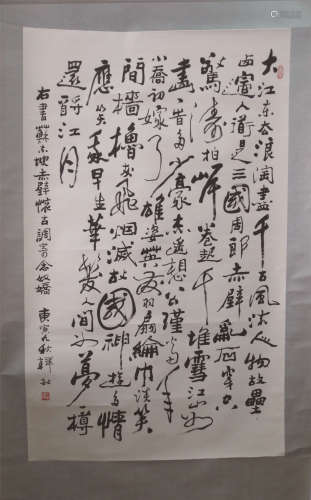 大江东去浪淘盡千古風流人物故壘
西邊人道是三國周郎赤壁亂石穿空
驚濤拍岸卷起千堆雪江山如
畫一時多少豪杰遥想公瑾當年
小喬初嫁了雄姿英發羽扇綸巾談笑
間檣櫓灰飛烟滅故國神遊多情
應笑我早生華髮人間如夢一樽
還酹江月
右書蘇東坡赤壁怀古調寄念奴嬌 庚寅秋